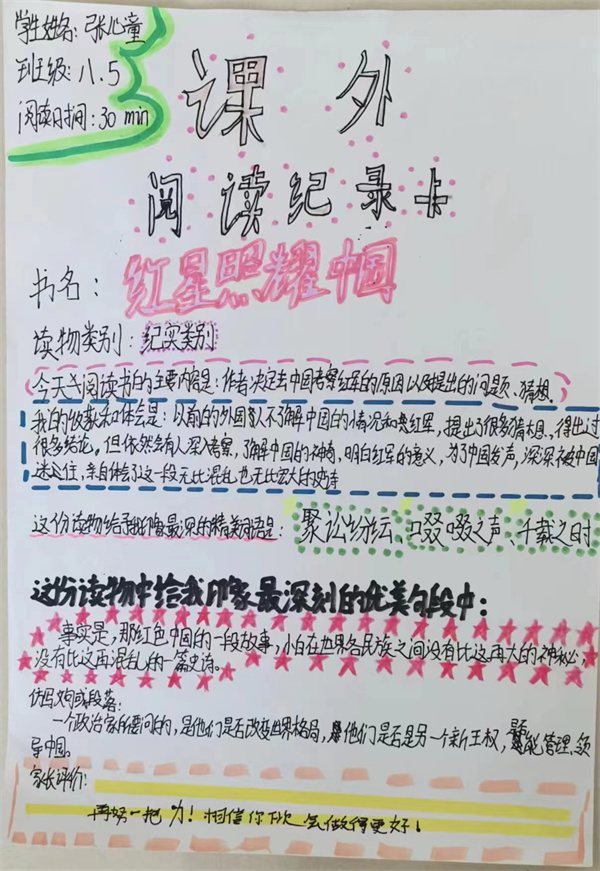 学生姓名：张心童
班级：八.5
阅读时间：30 min
课外
阅读纪录卡
书名：红星照耀中国
读物类别：纪实类别
今天我阅读书的主要内容是：作者决定去中国考察红军的原因以及提出的问题、猜想。
我的收获和体会是：以前的外国人不了解中国的情况和红军，提出了很多猜想、得出过
很多结论。但依然会有人深入考察，了解中国的神奇，明白红军的意义，为了中国发声，深深被中国
迷住，亲自体会了这一段无比混乱也无比宏大的史诗
这份读物给予我印象最深的精美词语是：聚讼纷纭、啜啜之声、千载之时
这份读物中给我印象最深刻的优美句段中：
事实是，那红色中国的一段故事，小白在世界各民族之间没有比这再大的神秘，
没有比这再混乱的一篇史诗。
仿写文句或段落：
一个政治家所要问的，是他们是否改变世界格局，他们是否是另一个新王权，能管理、领
导中国。
家长评价：
再努一把力！相信你下次会做得更好！